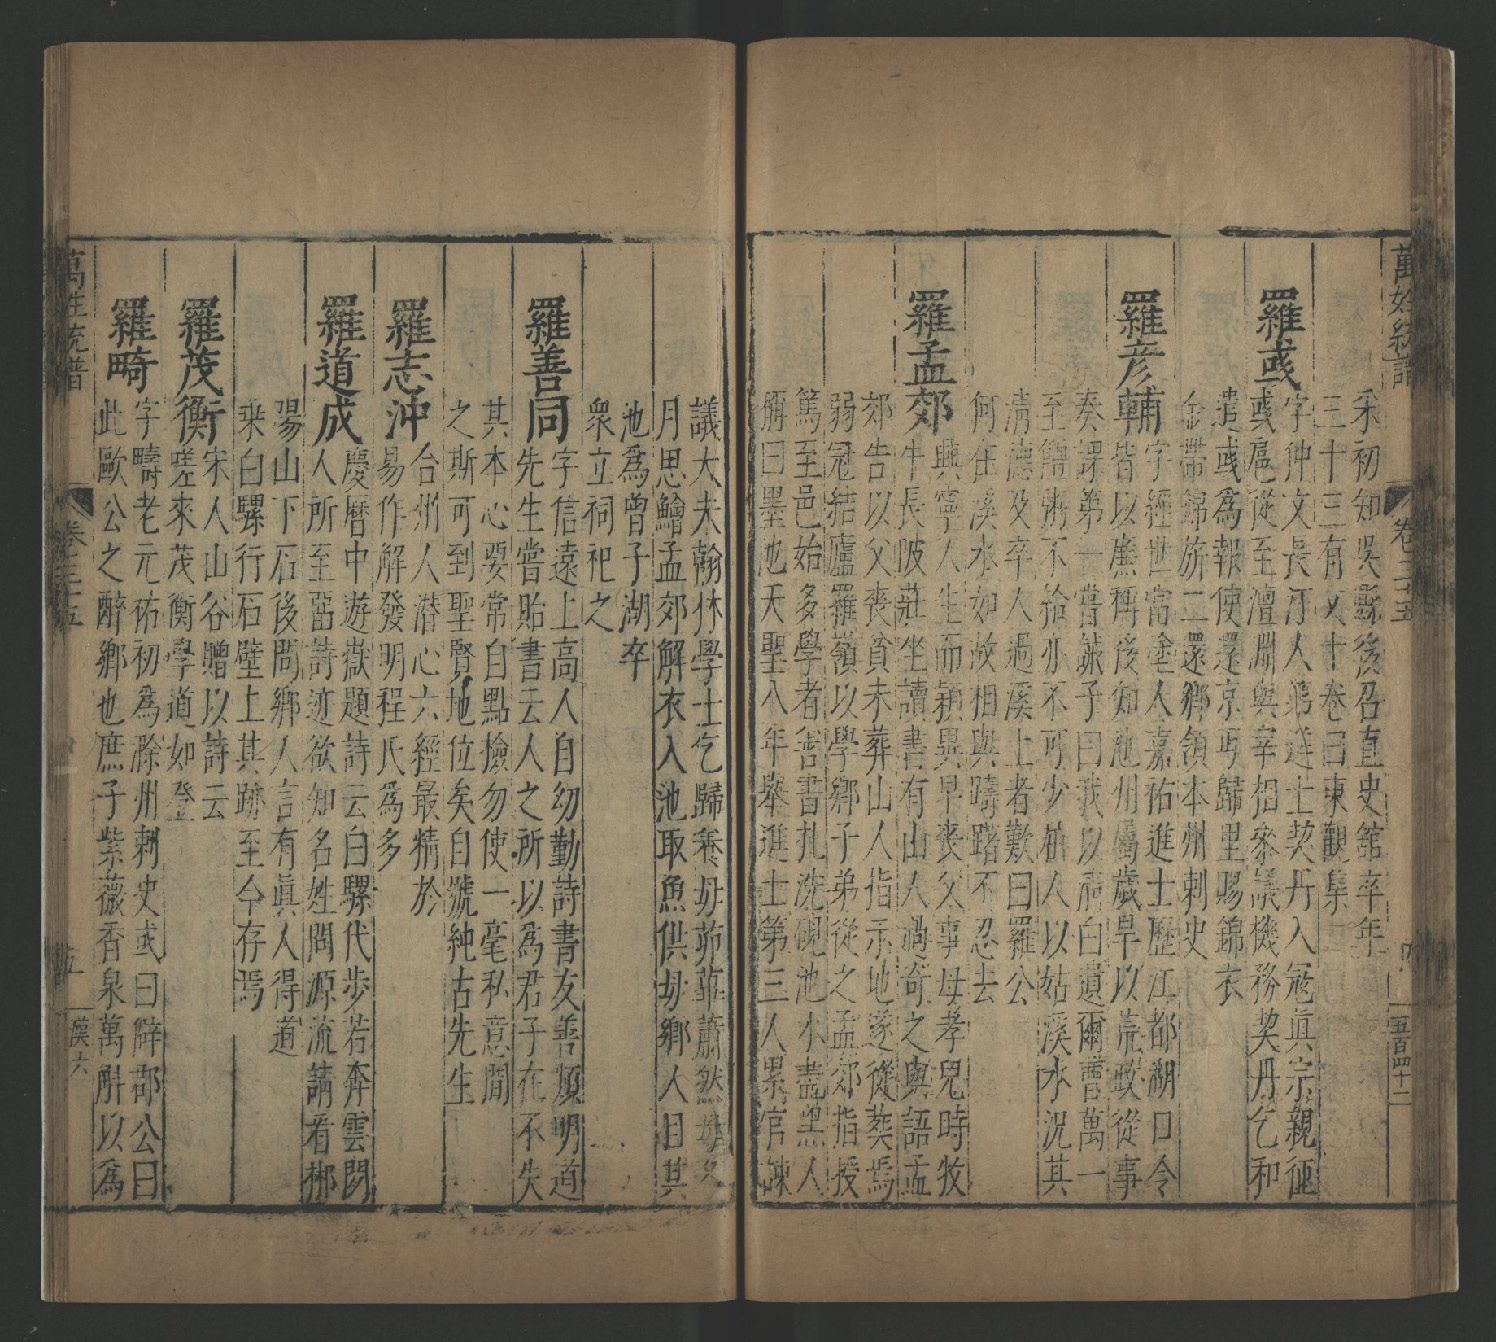 萬姓統譜
卷三十五
四
五百四十二
采初知吳縣後召直史舘卒年
三十三有文十卷曰東觀集
羅彧
字仲文長汀人第進士契丹入冦真宗親征
彧扈從至澶淵與宰相參議機務契丹乞和
遣彧爲報使還京丐歸里賜錦衣
金帶錦旂二還鄉領本州刺史
羅彦輔
字經世當塗人嘉祐進士歷江都湖口令
皆以亷稱後知池州屬歲旱以荒政從事
奏課第一嘗誡子曰我以清白遺爾曹萬一
至饘粥不給亦不可少枉人以姑溪水況其
清德及卒人過溪上者歎曰羅公
何在溪水如故相與躊躇不忍去
羅孟郊
興寧人生而穎異早喪父事母孝兒時牧
牛長陂莊坐讀書有山人過奇之與語孟
郊告以父喪貧未葬山人指示地遂從葬焉
弱冠結廬羅嶺以學鄉子弟從之孟郊指授
篤至邑始多學者甞書札洗硯池水盡黑人
稱曰墨池天聖八年舉進士第三人累官諫
議大夫翰林學士乞歸養母茆蓽蕭然母
月思鱠孟郊解衣入池取魚供母鄉人目其
池爲曾子湖卒
衆立祠祀之
羅善同
字信遠上高人自幼勤詩書友善頎明道
先生嘗貽書云人之所以爲君子在不失
其本心要常自點撿勿使一毫私意間
之斯可到聖賢地位矣自號純古先生
羅志沖
台州人潛心六經最精於
易作解發明程氏為多
羅道成
慶曆中遊嶽題詩云白騾代步若奔雲閑
人所至畱詩迹欲知名姓問源流請看郴
陽山下石後問鄉人言有眞人得道
來白騾行石壁上其跡至今存焉
羅茂衡
宋人山谷贈以詩云
嗟來茂衡學道如登
羅畸
字疇老元祐初爲滁州刺史或曰辟部公曰
此歐公之醉鄉也庶子紫薇香泉萬斛以爲
萬姓統譜
卷三十五
五
漢六